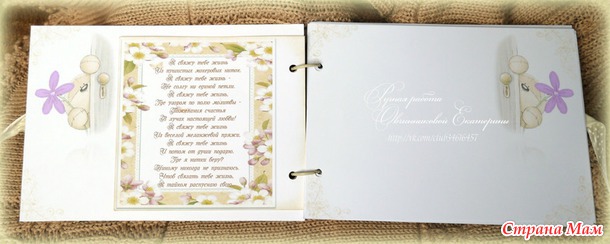 Я свяжу тебе жизнь
Из пушистых мохеровых ниток.
Я свяжу тебе жизнь -
Не солгу ни единой петли.
Я свяжу тебе жизнь,
Где узором по полю молитвы -
Пожелания счастья
В лучах настоящей любви!
Я свяжу тебе жизнь
Из веселой меланжевой пряжи.
Я свяжу тебе жизнь
И потом от души подарю.
Где я нитки беру?
Никому никогда не признаюсь.
Чтоб связать тебе жизнь,
Я тайком распускаю свою.
Ручная работа
Екатерины
Страна Мам